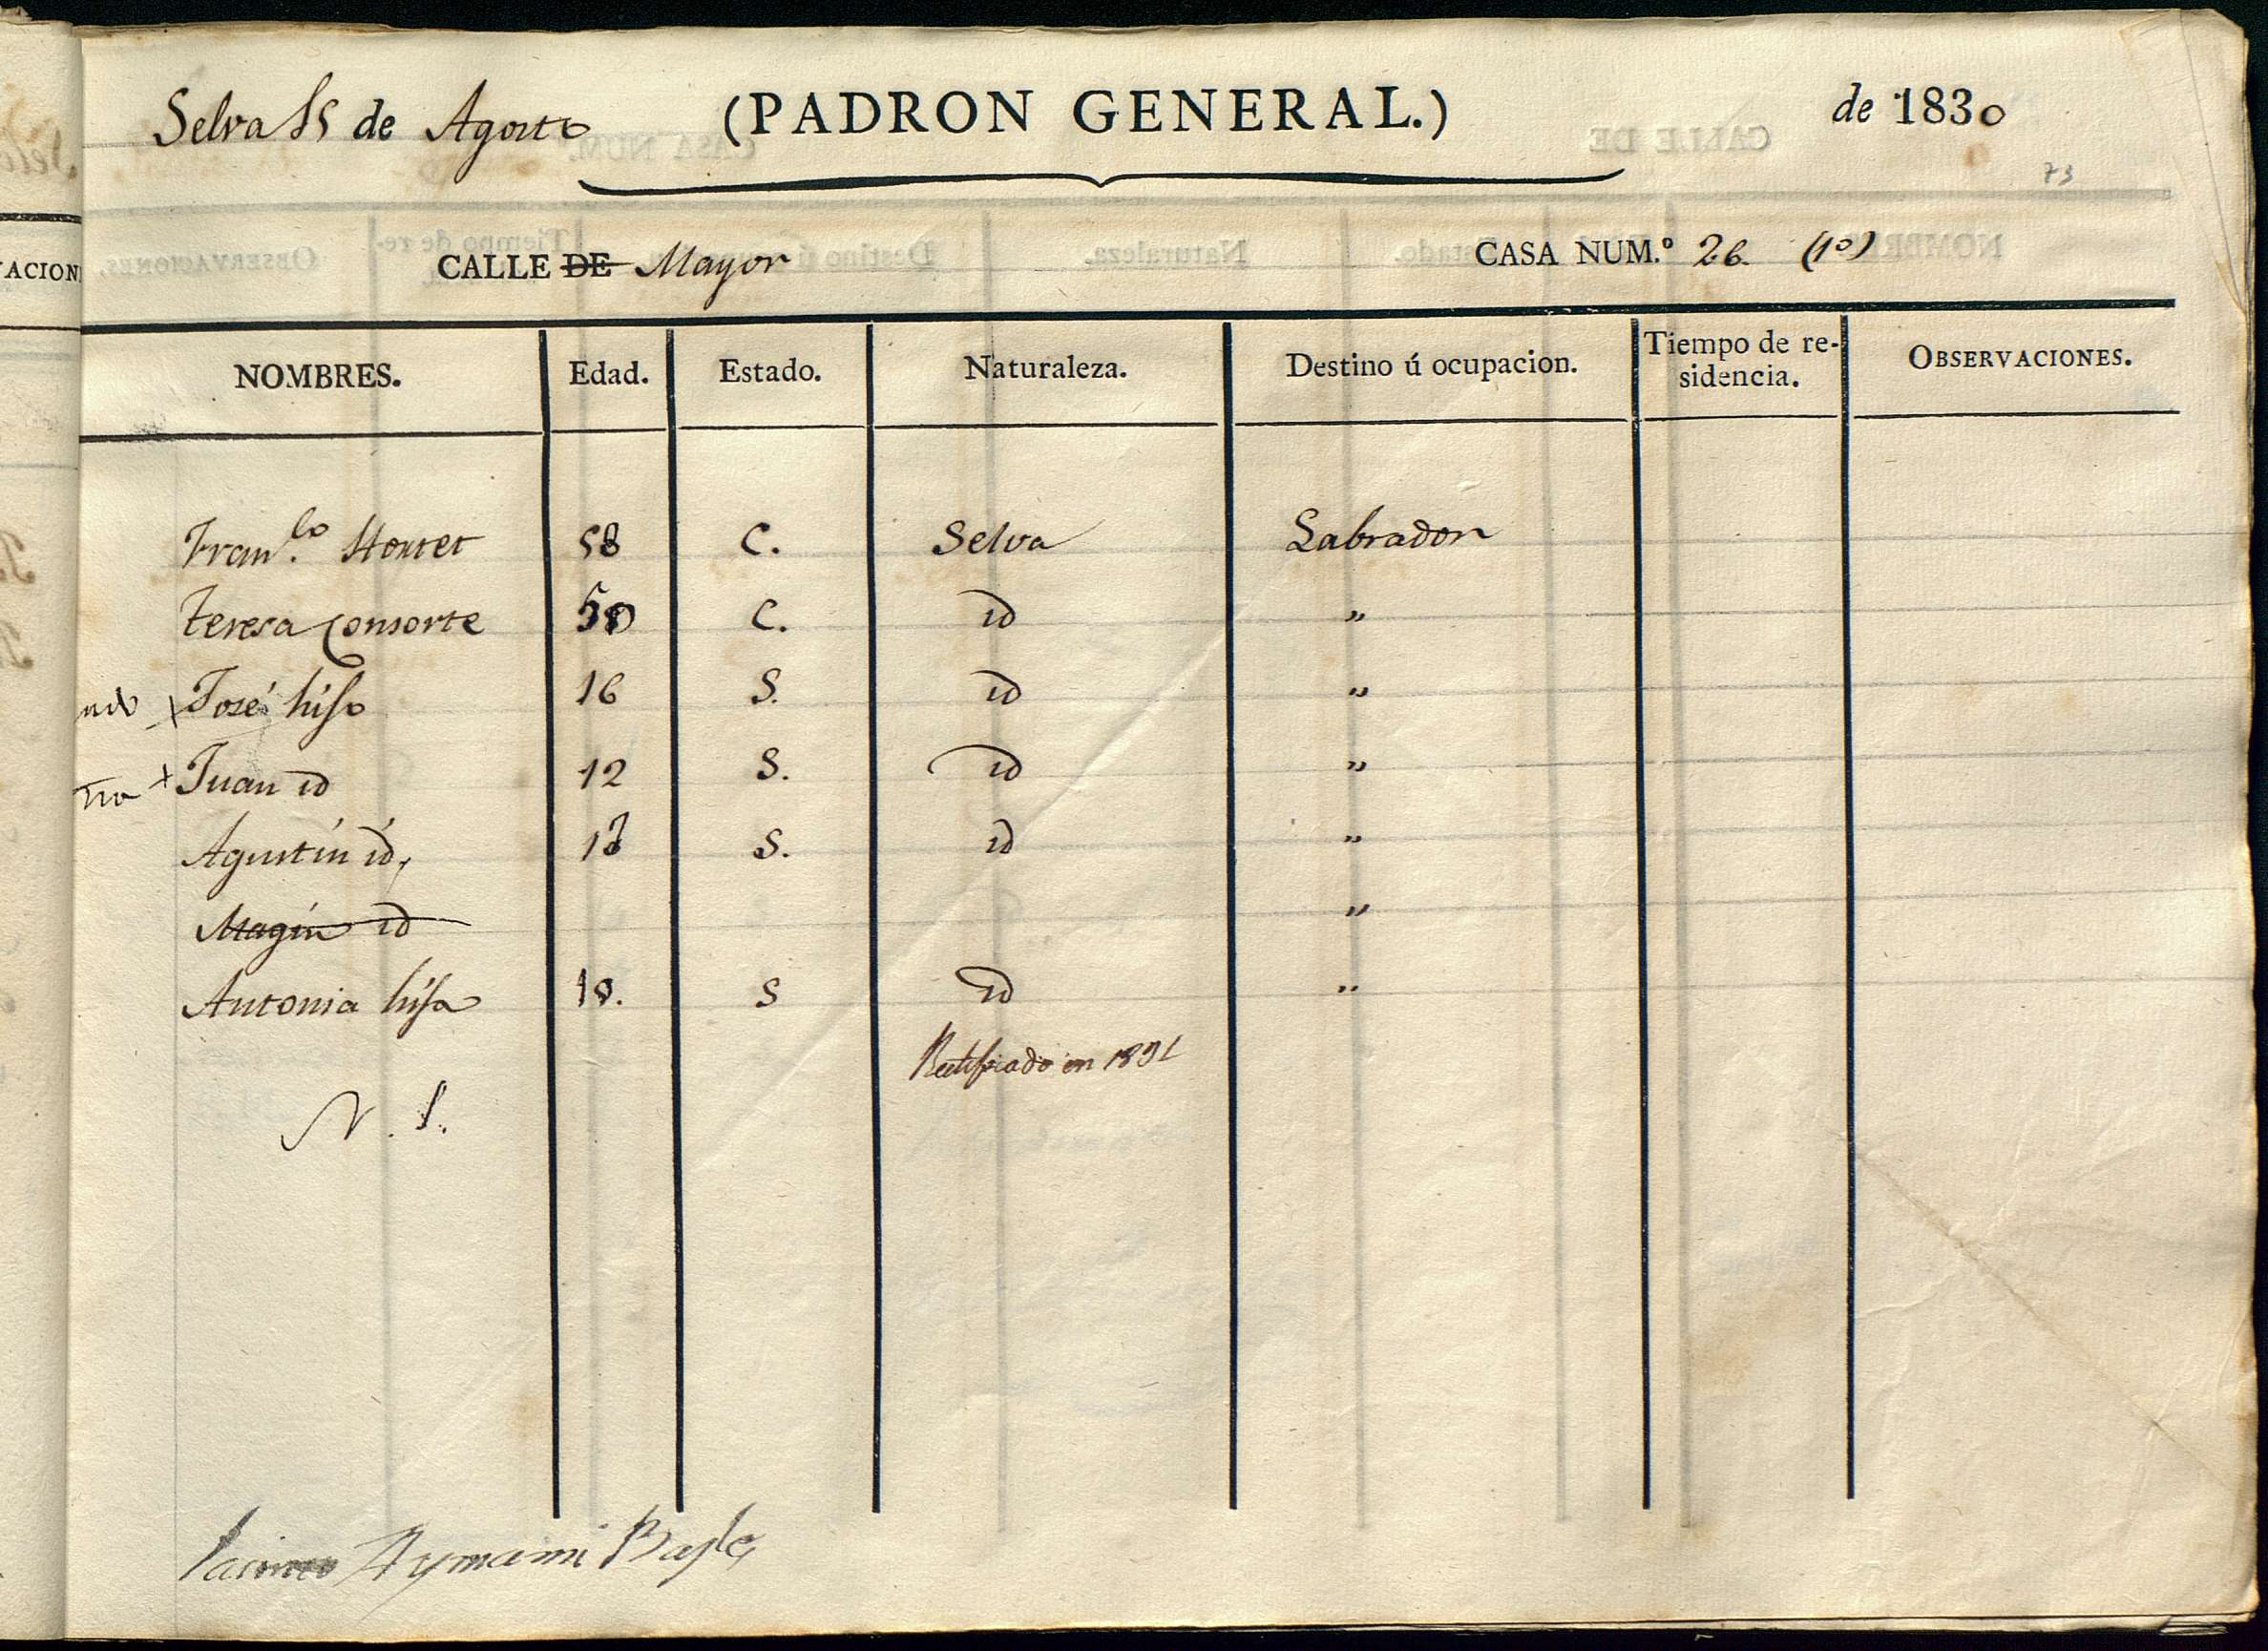 Selva 15 de Agosto (PADRON GENERAL.) de 1830
73
CALLE DE Mayor CASA NUM.º 26. (1º)
NOMBRES. Edad. Estado. Naturaleza. Destino ú ocupacion. Tiempo de residencia. OBSERVACIONES.
Fran.co Hortet 58 C. Selva Labrador
Teresa Consorte 50 C. id "
+ José hijo 16 S. id "
+ Juan id 12 S. id "
Agustín id, S. id "
Magin id "
Antonia hija 18. S id "
Rectificado en 1831
N. S.
Jaime Aymami Bayle